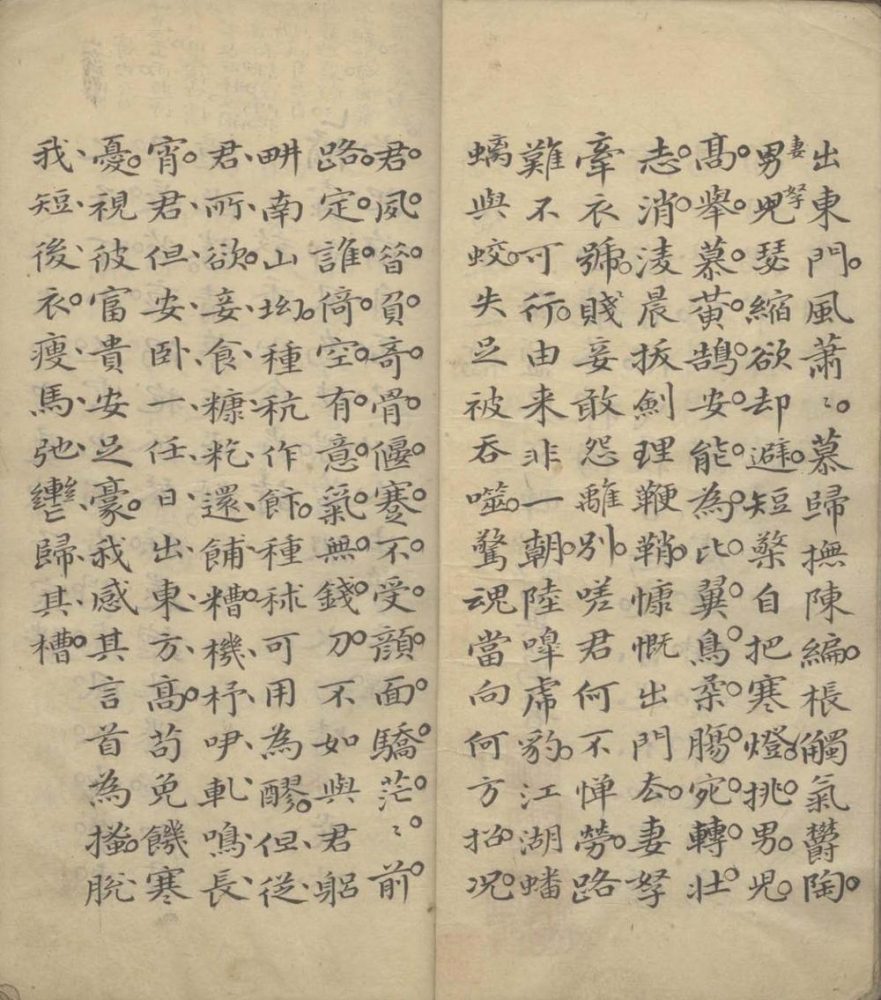 出東門風蕭〻慕歸撫陳編棖觸氣鬱陶
妻孥
男兒瑟縮欲却避短檠自把寒燈挑男兒
高舉慕黃鵠安能為比翼鳥柔腸宛轉壯
志消淩晨拔劍理鞭鞘慷慨出門去妻孥
牽衣號賤妾敢怨離別嗟君何不憚勞路
難不可行由来非一朝陸嘷虎豹江湖蟠
螭與蛟失足被吞噬驚魂當向何方招况
君夙昔負奇骨偃蹇不受顏面驕茫〻前
路定誰倚空有意氣無錢刀不如與君躬
畊南山坳種秔作飰種秫可用為醪但從
君所欲妾食糠籺還餔糟機杼咿軋鳴長
宵君但安卧一任日出東方高苟免饑寒
憂視彼富貴安足豪我感其言首為搔脫
我短後衣瘦馬弛轡歸其槽